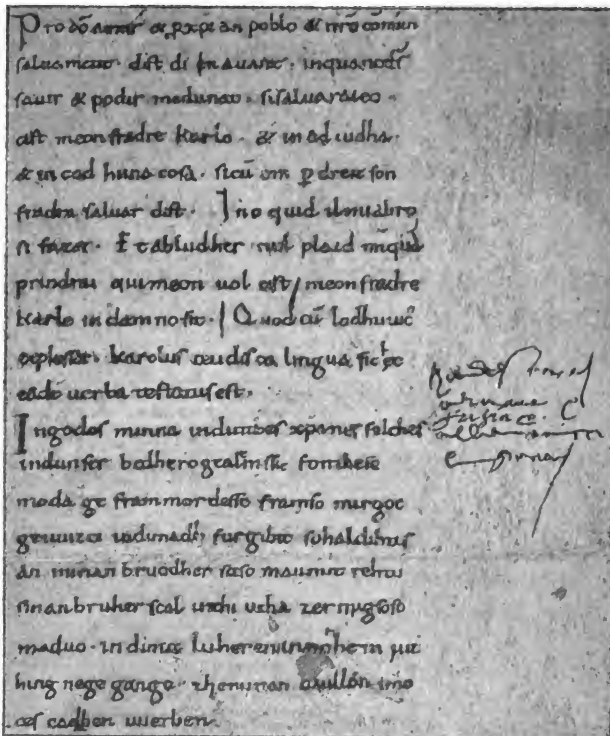 Pro dõ amur & pxpĩan poblo & nr̃o comun
saluament. dist di in auant. inquantdṡ
sauir & podir medunat. sisaluaraieo.
cist meon fradre karlo. & in ad iudha.
& in cad huna cosa. sicũ om p dreit son
fradra saluar dist. Ino quid ilmialtre
si fazet. Et abludher nul plaid nũquã
prindrai quimeon uol cist meonfradre
karle in damno sit. Quod cũ lodhuuic
explesset. karolus teudisca lingua sic hec
eadẽ uerba testatus est.
Ingodes minna indinthes xp̃anes folches
indunser bedhero gealtnissi. fonthese
moda ge frammordesso framso mirgot
geuuizci indimadh furgibit sohaldihtes
an minan bruodher soso manmit rehtu
sinan bruher scal inthi utha zermigsoso
maduo. indimit luheren innohein iut
hing nege gango. zheminan uuillon imo
ces cadhen uuerhen.